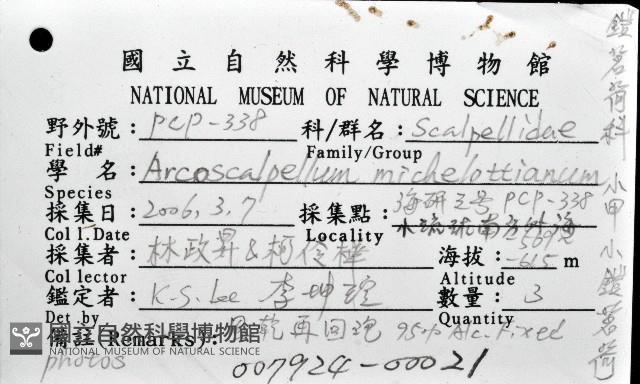 國立自然科學博物館
NATIONAL MUSEUM OF NATURAL SCIENCE
野外號: PCP-338 科/群名: Scalpellidae
Field# Family/Group
學 名: Arcoscalpellum michelottianum
Species
採集日: 2006.3.7 採集點: 海研三號 PCP-338
小琉球南方外海
Coll.Date Locality
採集者: 林政昇&柯伶樺 海拔: m
Collector Altitude
鑑定者: K.S. Lee 李坤瑄 數量: 3
Det.by Quantity
備註(Remarks): 乾再回泡 95% Alc. Fixed
photos 007924-00021
鎧茗荷科 小甲小鎧茗荷
國立自然科學博物館
NATIONAL MUSEUM OF NATURAL SCIENCE